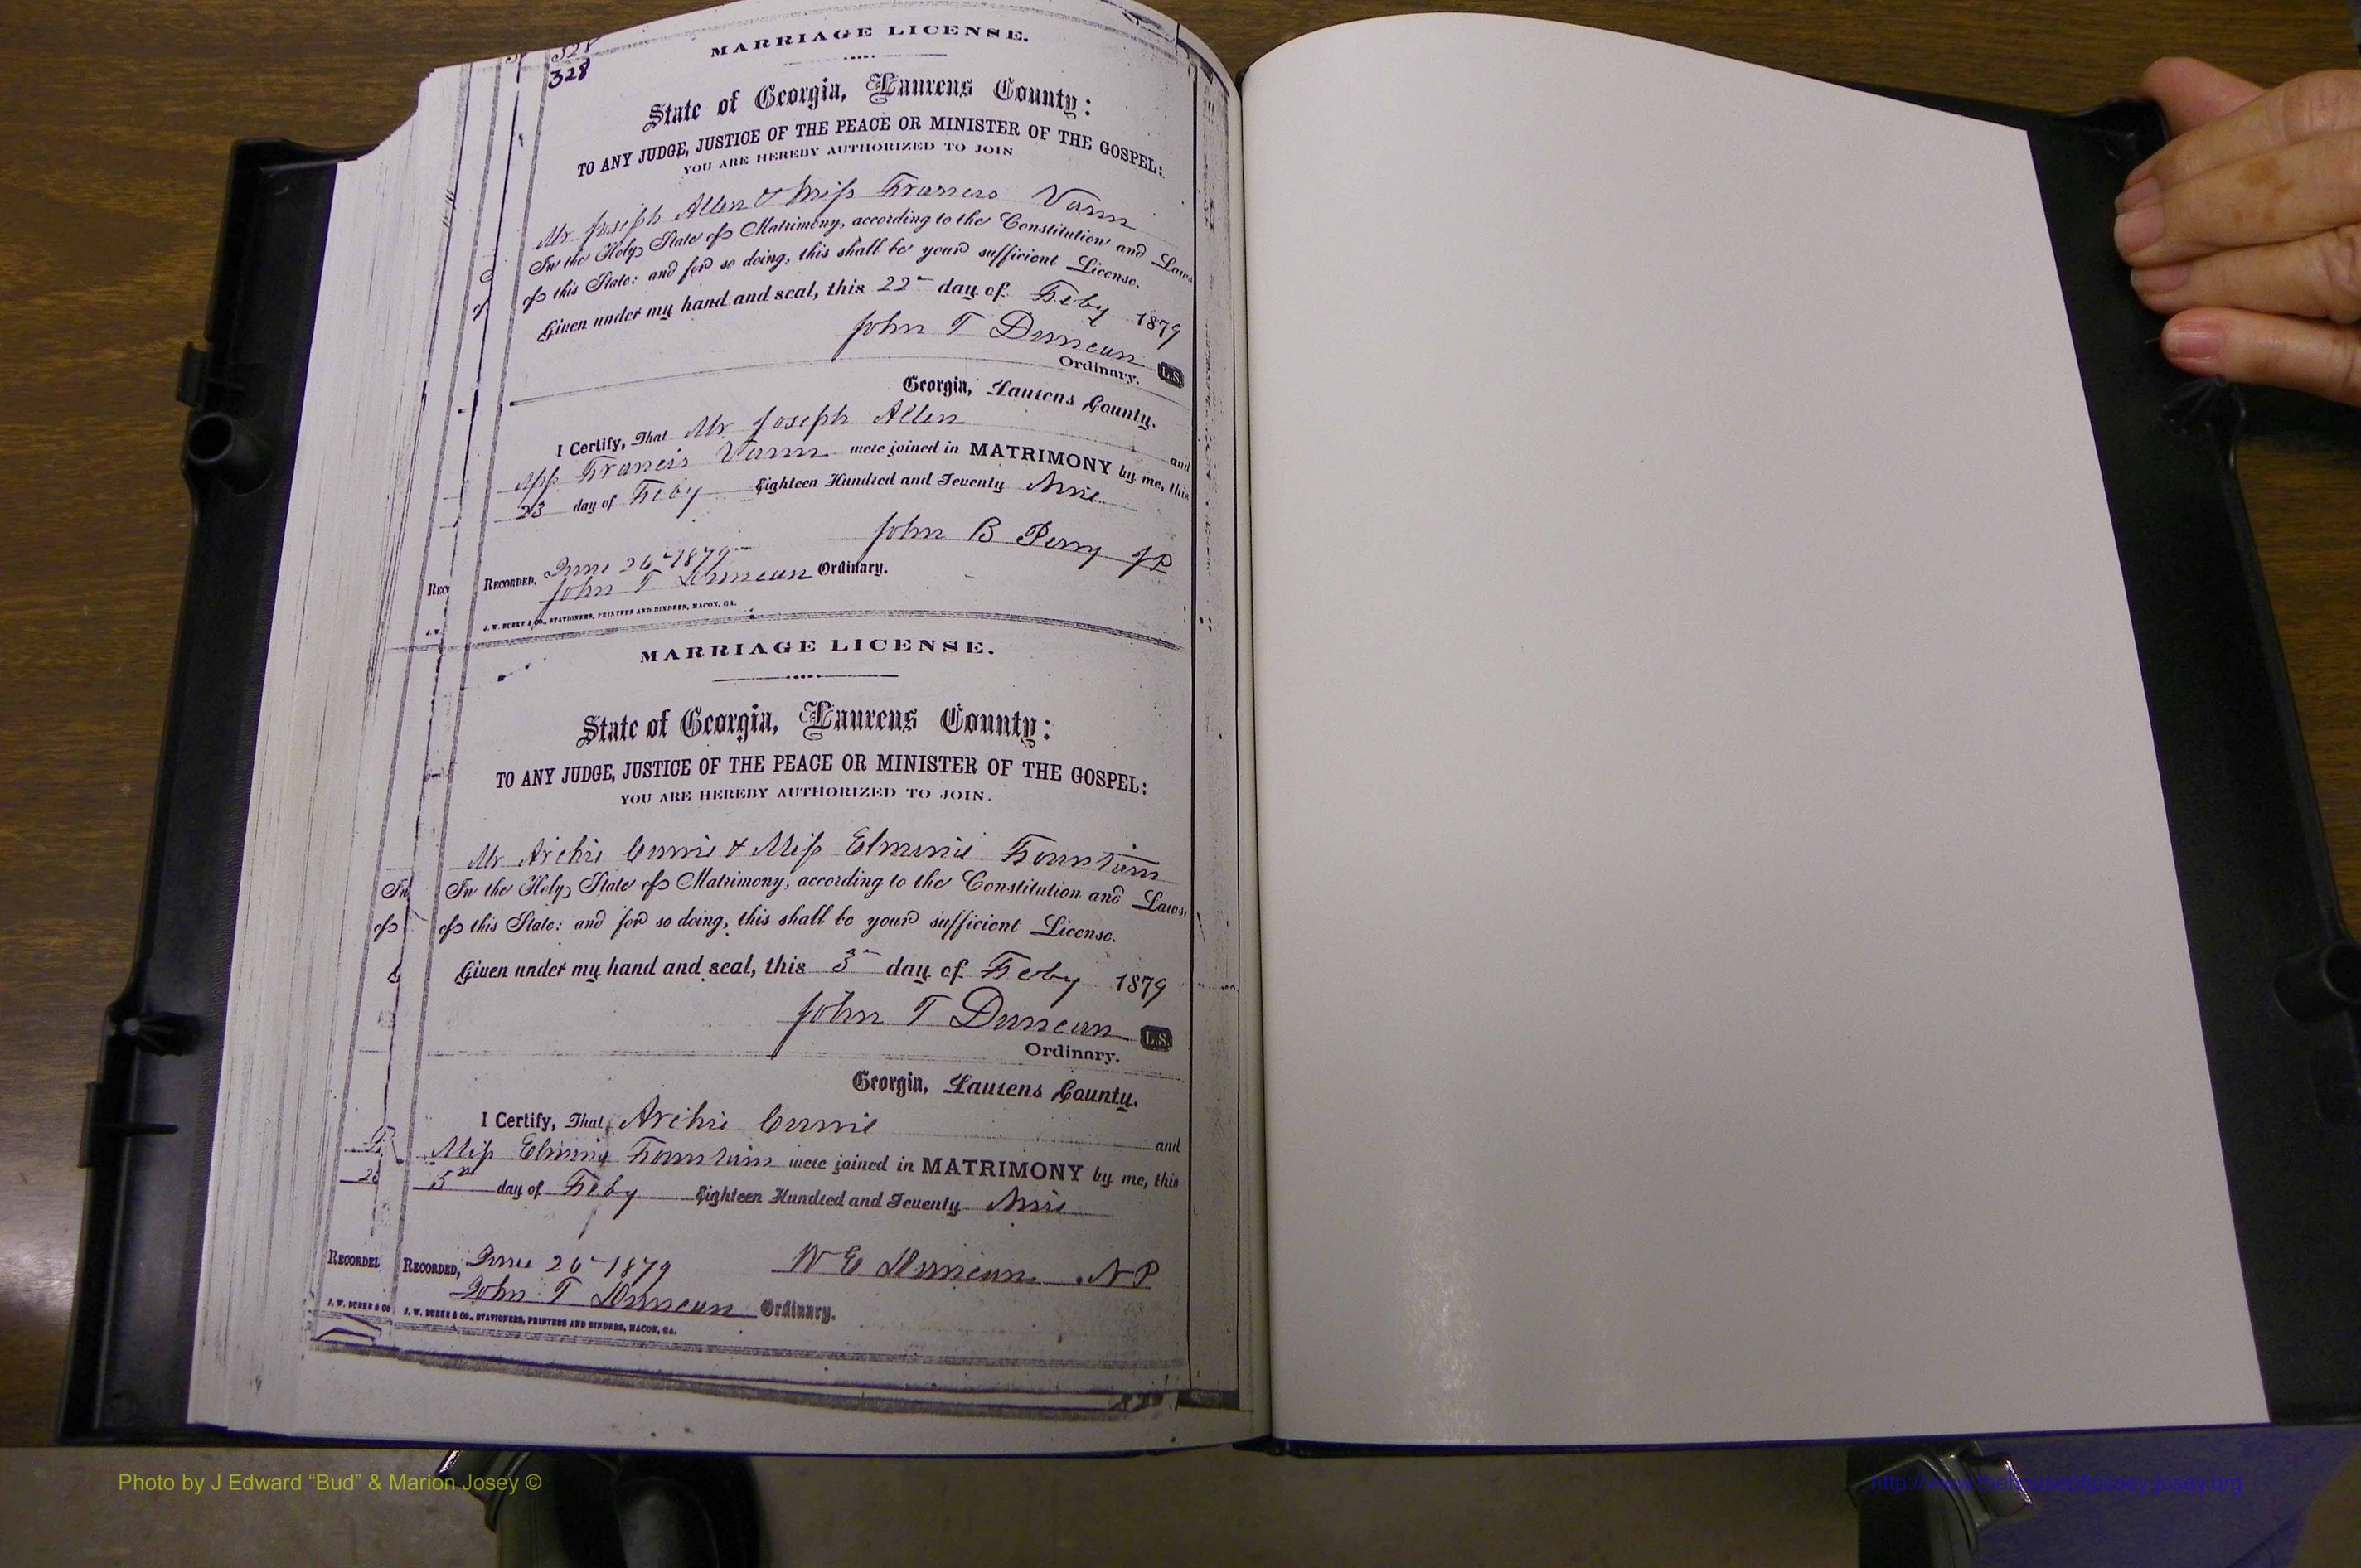 328
328
MARRIAGE LICENSE.
State of Georgia, Laurens County:
TO ANY JUDGE, JUSTICE OF THE PEACE OR MINISTER OF THE GOSPEL:
YOU ARE HEREBY AUTHORIZED TO JOIN
Mr Joseph Allen & Miss Frances Vann
In the Holy State of Matrimony, according to the Constitution and Laws
of this State: and for so doing, this shall be your sufficient License.
Given under my hand and seal, this 22 day of Feby 1879
John T Duncan L.S.
Ordinary.
Georgia, Laurens County.
I Certify, That Mr Joseph Allen and
Francis Vann were joined in MATRIMONY by me, this
23 day of Feby Eighteen Hundred and Seventy Nine
John B Perry JP
RECORDED, June 26 1879
John T Duncan Ordinary.
J. W. BURKE & CO., STATIONERS, PRINTERS AND BINDERS, MACON, GA.
MARRIAGE LICENSE.
State of Georgia, Laurens County:
TO ANY JUDGE, JUSTICE OF THE PEACE OR MINISTER OF THE GOSPEL:
YOU ARE HEREBY AUTHORIZED TO JOIN.
Mr Archie & Miss Fountain
In the Holy State of Matrimony, according to the Constitution and Laws
of this State: and for so doing, this shall be your sufficient License.
Given under my hand and seal, this day of Feby 1879
John T Duncan L.S.
Ordinary.
Georgia, Laurens County.
I Certify, That Archie and
Miss Fountain were joined in MATRIMONY by me, this
5 day of Feby Eighteen Hundred and Seventy Nine
W E Duncan N P
RECORDED, June 26 1879
John T Duncan Ordinary.
J. W. BURKE & CO., STATIONERS, PRINTERS AND BINDERS, MACON, GA.
Photo by J Edward “Bud” & Marion Josey ©